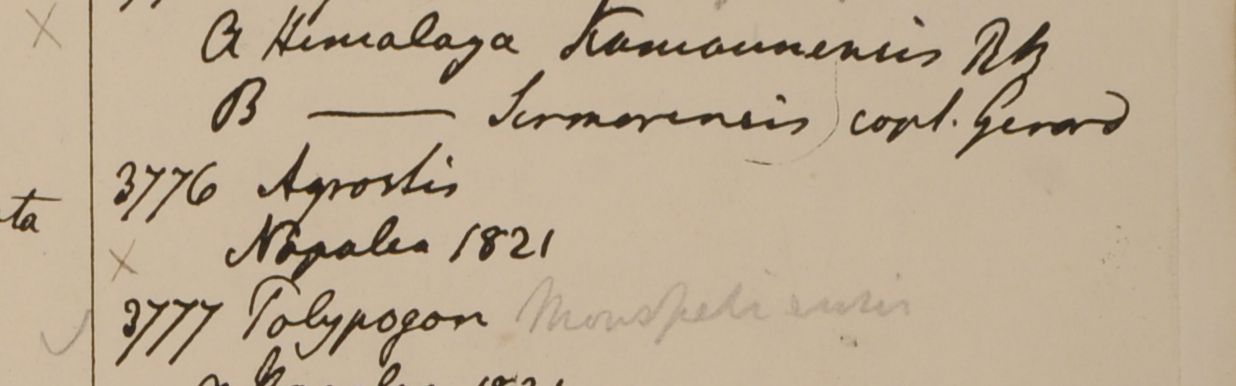 A Himalaya Kamaunensis RB
B —— Sirmorensis copl. Gerard
3776 Agrostis
ta
Napalea 1821
3777 Polypogon Monspeliensis